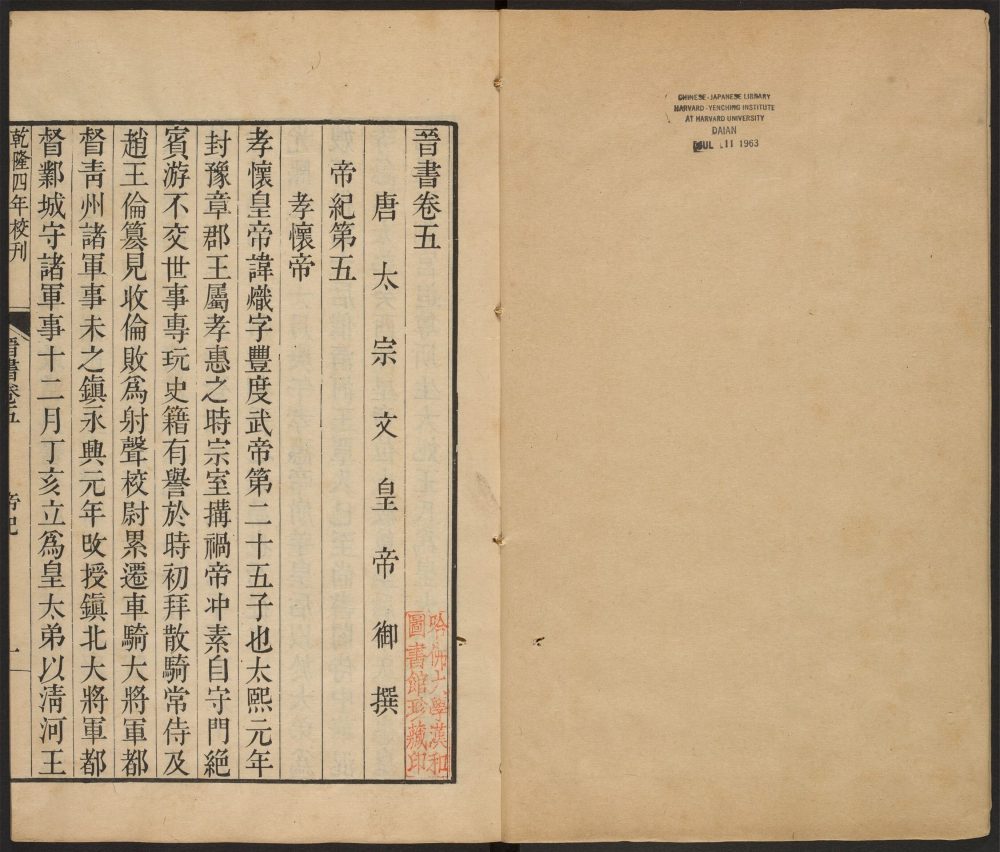 CHINESE-JAPANESE LIBRARY
HARVARD-YENCHING INSTITUTE
AT HARVARD UNIVERSITY
DAIAN
JUL 11 1963
晉書卷五
唐太宗文皇帝御撰
帝紀第五
孝懷帝
孝懷皇帝諱熾字豐度武帝第二十五子也太熙元年
封豫章郡王屬孝惠之時宗室搆禍帝冲素自守門絶
賓游不交世事專玩史籍有譽於時初拜散騎常侍及
趙王倫篡見收倫敗爲射聲校尉累遷車騎大將軍都
督靑州諸軍事未之鎭永興元年改授鎭北大將軍都
督鄴城守諸軍事十二月丁亥立爲皇太弟以淸河王
乾隆四年校刊
晉書卷五
帝紀
一
哈佛大學漢和
圖書館珍藏印